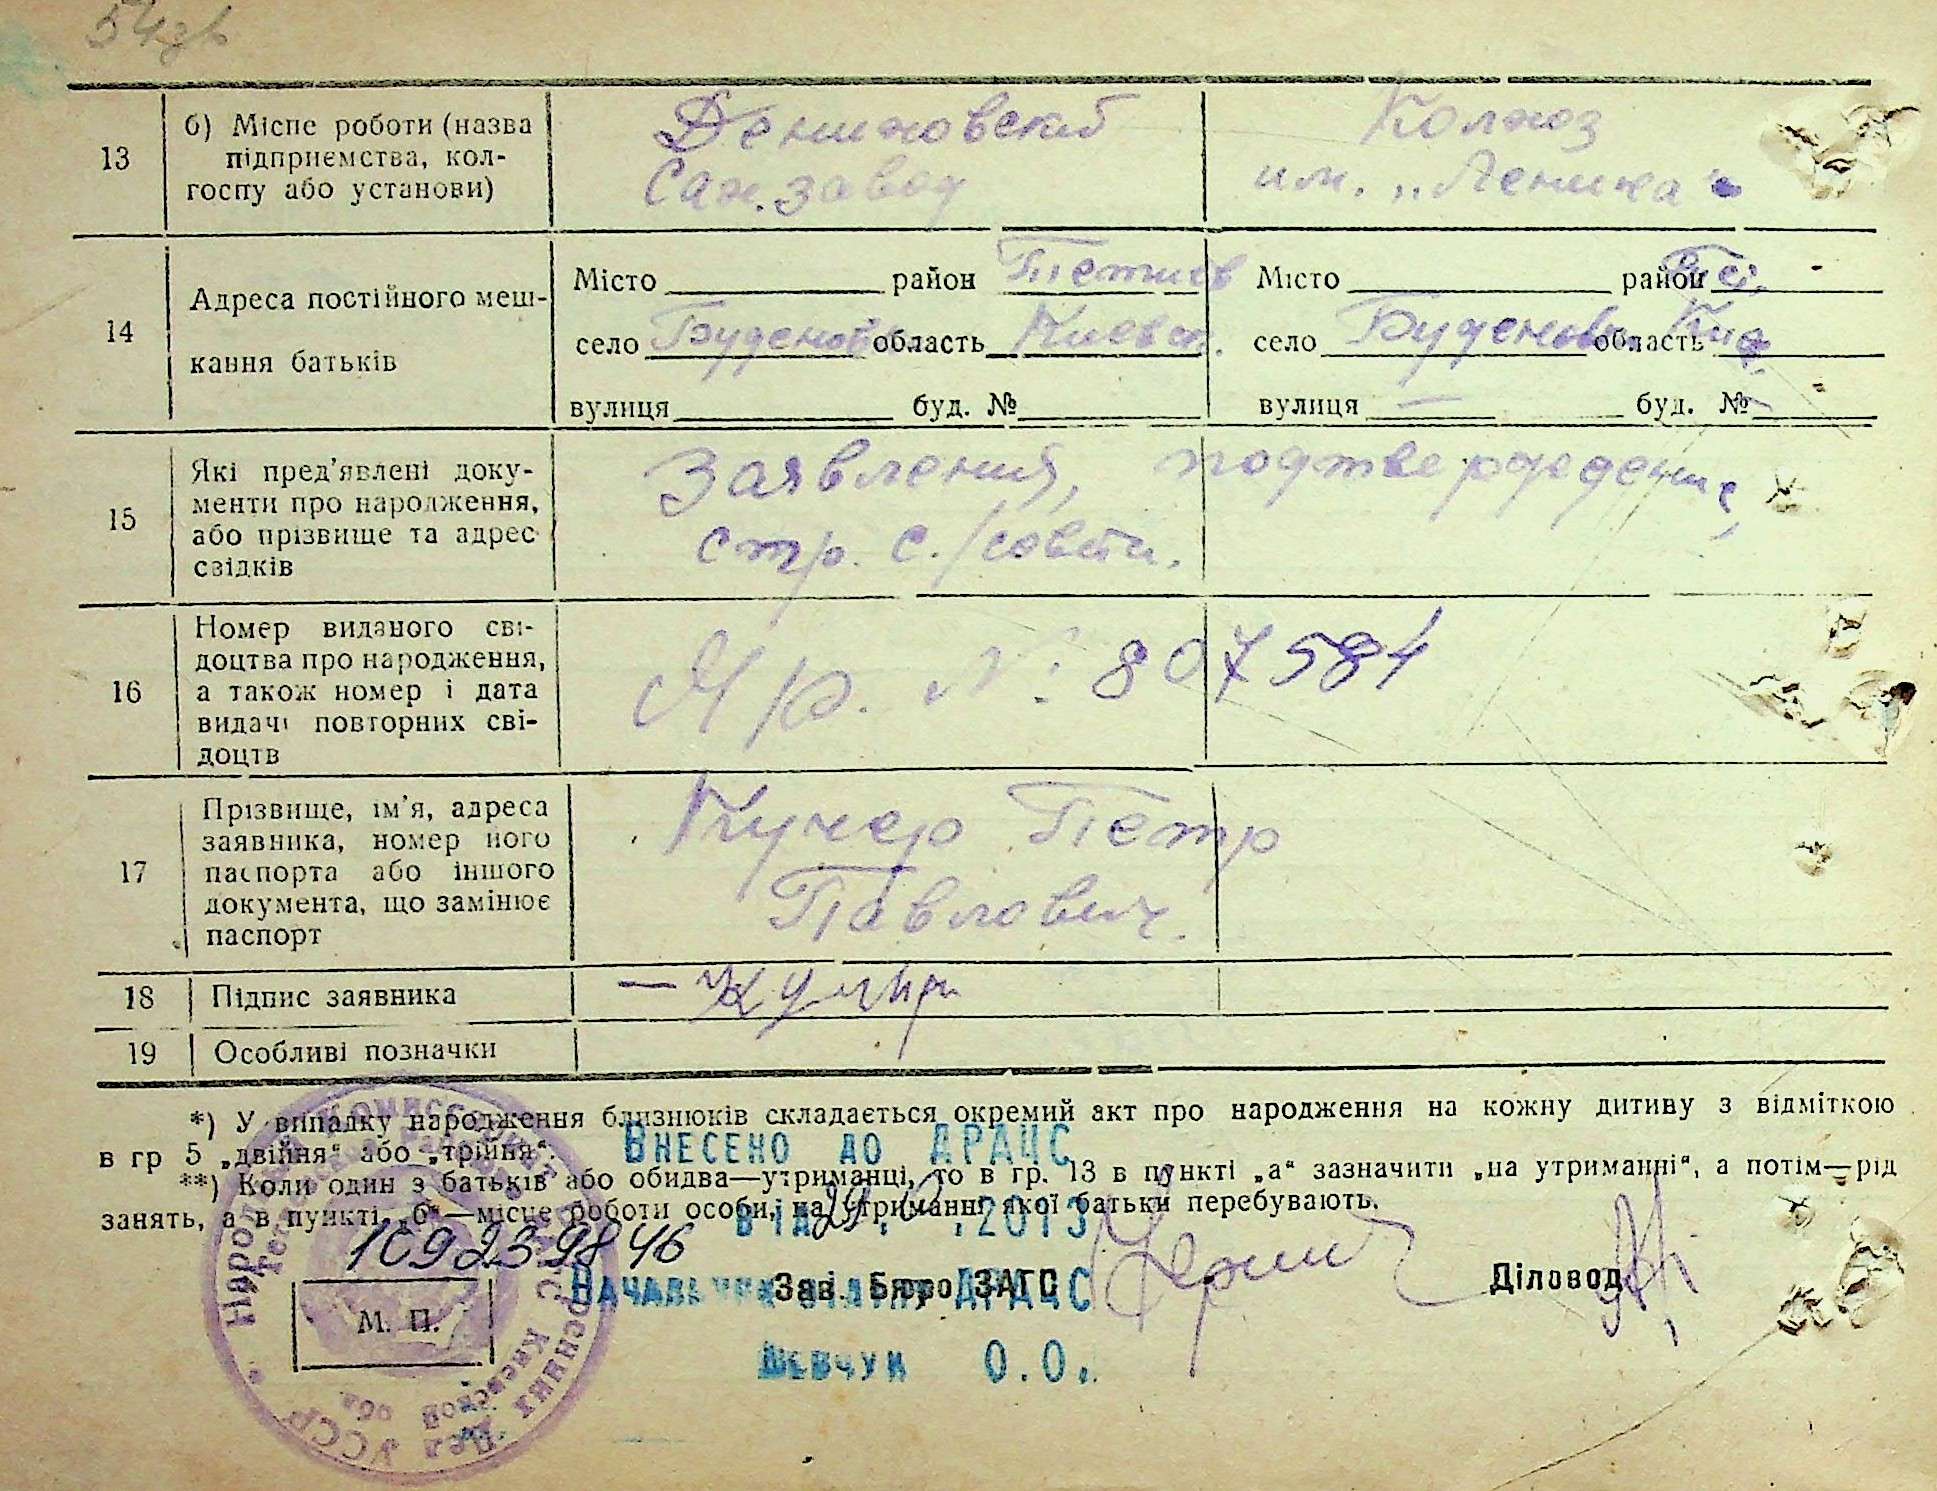 54зв
13
б) Місце роботи (назва
підприємства, кол-
госпу або установи)
Дениховский
Сах. завод
Колхоз
им. „Ленина“
14
Адреса постійного меш-
кання батьків
Місто район Тетиев
село Буденовк область Киевск.
вулиця буд. №
Місто район Тет. -
село Буденовк область Киев. -
вулиця — буд. № —
15
Які пред'явлені доку-
менти про народження,
або прізвище та адрес
свідків
Заявлений, подтверждение,
стр. с./совета.
16
Номер виданого сві-
доцтва про народження,
а також номер і дата
видачі повторних сві-
доцтв
№: 807584
17
Прізвище, ім'я, адреса
заявника, номер його
паспорта або іншого
документа, що замінює
паспорт
Кучер Петр
Павлович.
18
Підпис заявника
— Кучир
19
Особливі позначки
*) У випадку народження близнюків складається окремий акт про народження на кожну дитину з відміткою
в гр 5 „двійня“ або „трійня“.
Внесено до ДРАЦС
**) Коли один з батьків або обидва—утриманці, то в гр. 13 в пункті „а“ зазначити „на утриманні“, а потім—рід
занять, а в пункті „б“—місце роботи особи, на утриманні якої батьки перебувають.
від .2013
109239846
Начальник відділу ДРАЦС
Зав. Бюро ЗАГС
Діловод
М. П.
Шевчук О.О.
Киевской обл
Дел УССР